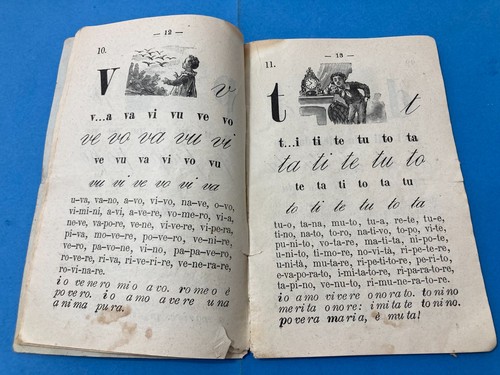 — 12 —
10.
V v
v...a va vi vu ve vo
ve vo va vu vi
ve vu va vi vo vu
vu vi ve vo vi va
u-va, va-no, a-vo, vi-vo, na-ve, o-vo,
vi-mi-ni, a-vi, a-ve-re, vo-me-ro, vi-a,
ne-ve, va-po-re, ve-na, vi-ve-re, vi-pe-ra,
pi-va, mo-ve-re, po-ve-ro, ve-ni-re,
ve-ro, pa-vo-ne, vi-no, pa-pa-ve-ro,
ro-ve-re, ri-va, ri-ve-ri-re, ve-ne-ra-re,
ro-vi-na-re.
io venero mio avo. romeo è
povero. io amo avere una
anima pura.
— 13 —
11.
t t
t...i ti te tu to ta
ta ti te tu to
te ta ti to ta tu
to ti te tu to ta
tu-o, ta-na, mu-to, tu-a, re-te, tu-e,
ti-no, na-to, to-ro, na-ti-vo, to-po, vi-te,
pu-ni-to, vo-ta-re, ma-ti-ta, ni-po-te,
u-ni-to, ve-ni-te, mo-vi-tà, ri-pe-te-re
u-ni-tà, mu-ta-re, ri-pe-ti-to-re, pe-ri-to,
e-va-po-ra-to, i-mi-ta-to-re, ri-pa-ra-to-re,
ta-pi-no, ve-nu-to, ri-mu-ne-ra-to-re.
io amo vivere onorato. tonino
merita onore: imitate tonino.
povera maria, è muta!